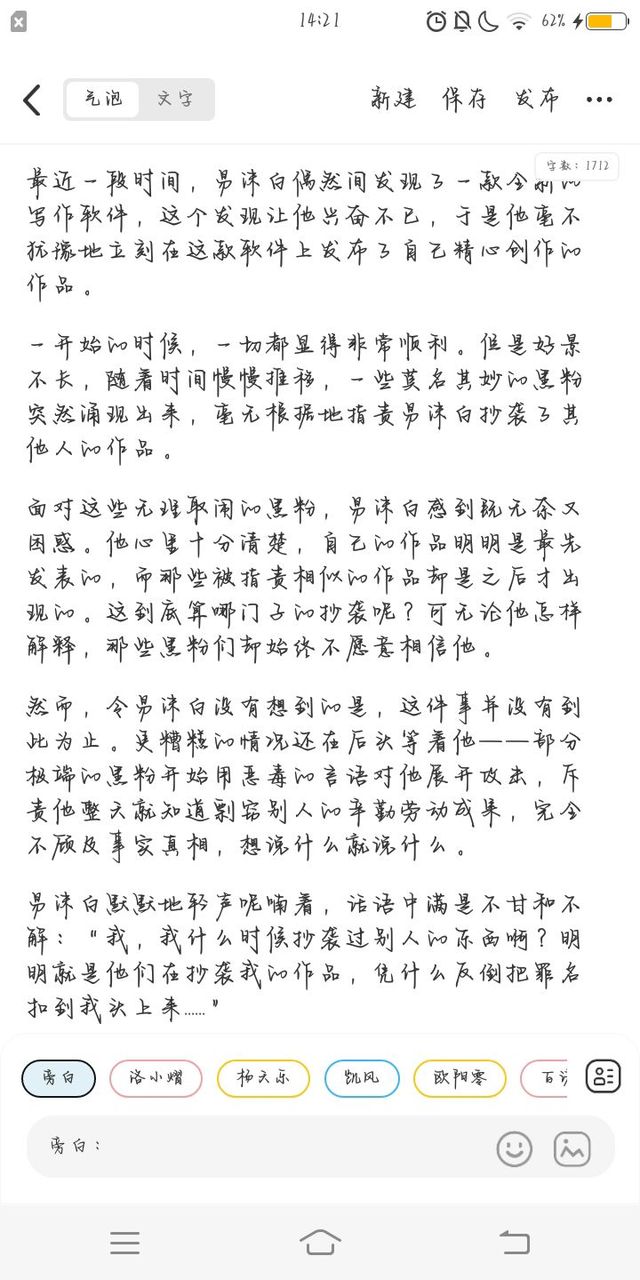 14:21
62%
气泡
文字
新建
保存
发布
字数：1712
最近一段时间，易沫白偶然间发现了一款全新的
写作软件，这个发现让他兴奋不已，于是他毫不
犹豫地立刻在这款软件上发布了自己精心创作的
作品。
一开始的时候，一切都显得非常顺利。但是好景
不长，随着时间慢慢推移，一些莫名其妙的黑粉
突然涌现出来，毫无根据地指责易沫白抄袭了其
他人的作品。
面对这些无理取闹的黑粉，易沫白感到既无奈又
困惑。他心里十分清楚，自己的作品明明是最先
发表的，而那些被指责相似的作品却是之后才出
现的。这到底算哪门子的抄袭呢？可无论他怎样
解释，那些黑粉们却始终不愿意相信他。
然而，令易沫白没有想到的是，这件事并没有到
此为止。更糟糕的情况还在后头等着他——部分
极端的黑粉开始用恶毒的言语对他展开攻击，斥
责他整天就知道剽窃别人的辛勤劳动成果，完全
不顾及事实真相，想说什么就说什么。
易沫白默默地轻声呢喃着，话语中满是不甘和不
解：“我，我什么时候抄袭过别人的东西啊？明
明就是他们在抄袭我的作品，凭什么反倒把罪名
扣到我头上来……”
旁白
洛小熠
杨天乐
凯风
欧阳零
百
旁白：